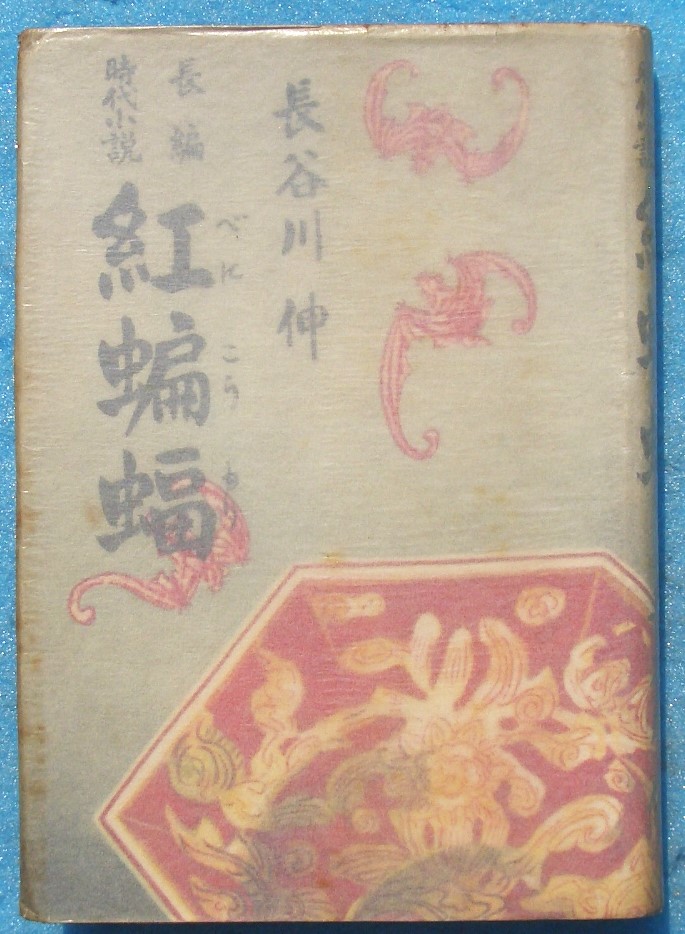 長谷川 伸
長編
時代小説
紅蝙蝠
べにこうもり